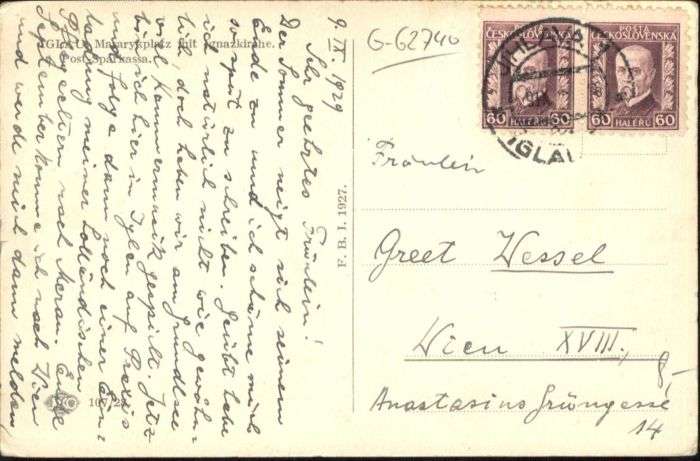 IGLAU. Masarykplatz mit Ignazkirche.
Post. Sparkassa.
9. IX. 1929
Sehr geehrtes Fräulein!
Der Sommer neigt sich seinem
Ende zu und ich schäme mich
so spät zu schreiben. Geübt habe
ich natürlich nicht wie gewöhn-
lich, doch haben wir am Grundlsee
viel Kammermusik gespielt. Jetzt
bin ich hier in Iglau auf Praxis
und folge dann noch einer Ein-
ladung meiner holländischen
Pflegeeltern nach Meran. Ende
September komme ich nach Wien
und werde mich dann melden
107/28
F. B. I. 1927.
G-62740
POSTA
ČESKOSLOVENSKÁ
60 HALÉŘŮ 60
POSTA
ČESKOSLOVENSKÁ
60 HALÉŘŮ 60
JIHLAVA 1
IGLAU
Fräulein
Greet Wessel
Wien XVIII,
Anastasius Grüngasse
14
8-